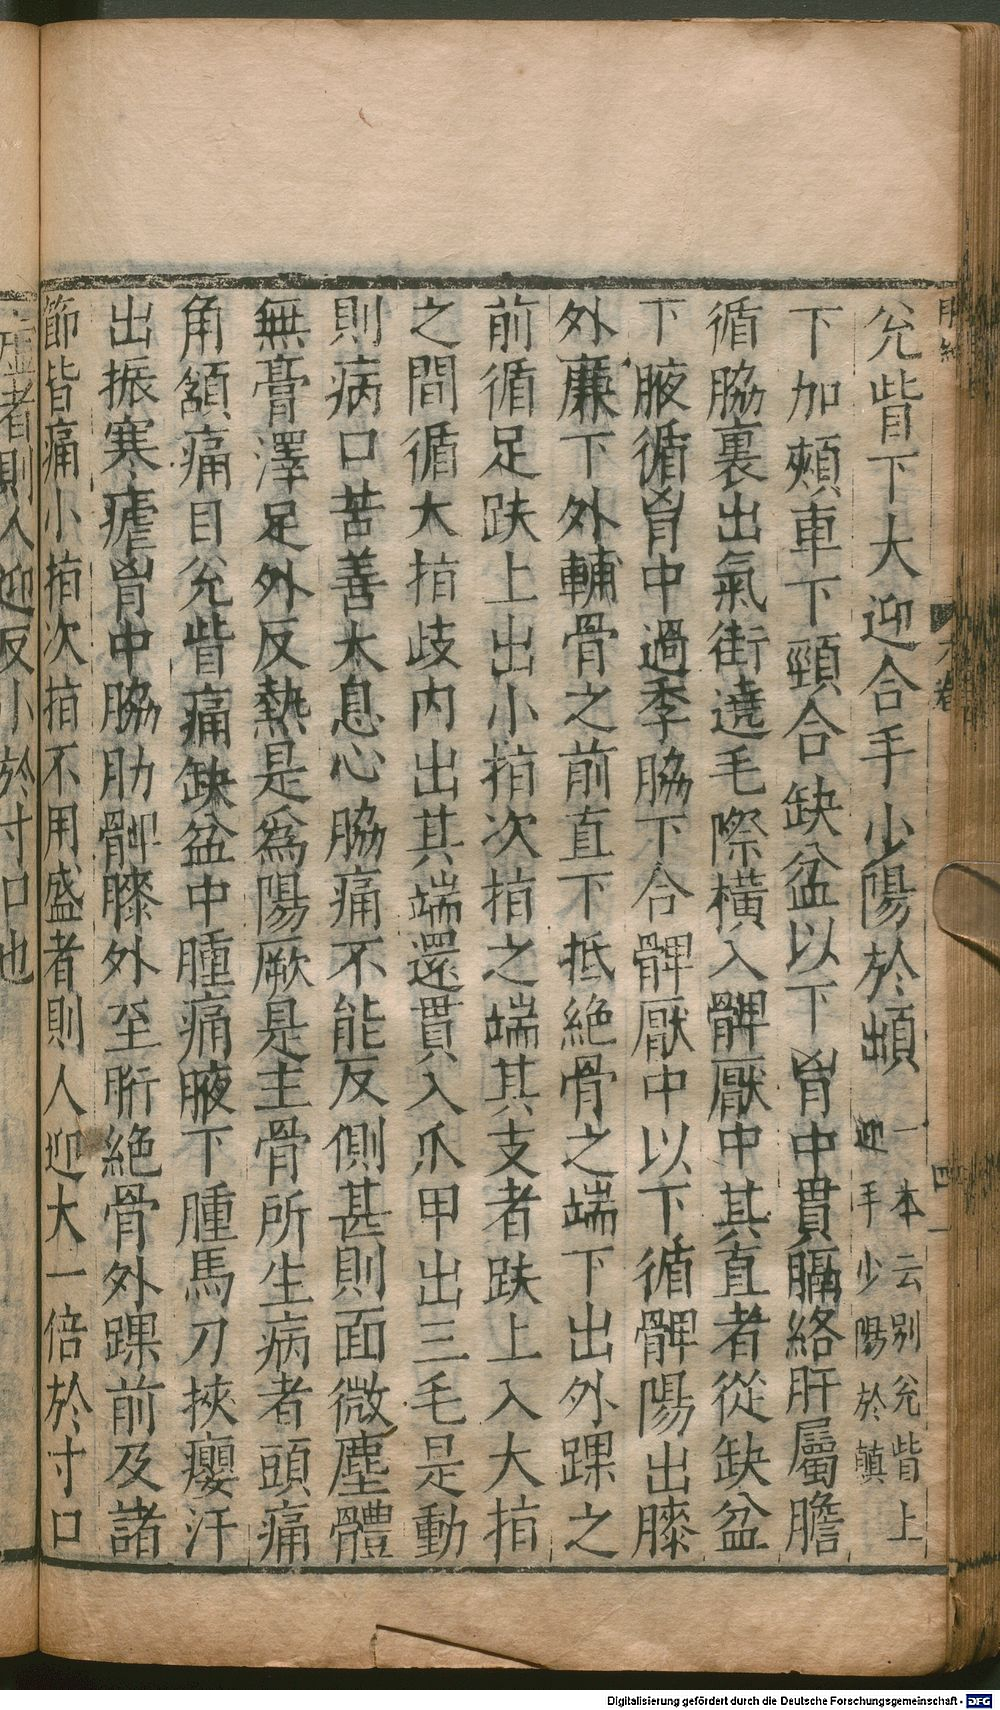 兊眥下大迎合手少陽於䪼一本云別兊眥上迎手少陽於䪼
下加頰車下頸合缺盆以下胷中貫膈絡肝屬膽
循脇裏出氣街遶毛際橫入髀厭中其直者從缺盆
下腋循胷中過季脇下合髀厭中以下循髀陽出膝
外廉下外輔骨之前直下抵絕骨之端下出外踝之
前循足趺上出小指次指之端其支者趺上入大指
之間循大指歧內出其端還貫入爪甲出三毛是動
則病口苦善太息心脇痛不能反側甚則面微塵體
無膏澤足外反熱是爲陽厥是主骨所生病者頭痛
角頷痛目兊眥痛缺盆中腫痛腋下腫馬刀挾癭汗
出振寒瘧胷中脇肋髀膝外至胻絕骨外踝前及諸
節皆痛小指次指不用盛者則人迎大一倍於寸口
虛者則人迎反小於寸口也
六卷
四
Digitalisierung gefördert durch die Deutsche Forschungsgemeinschaft - DFG